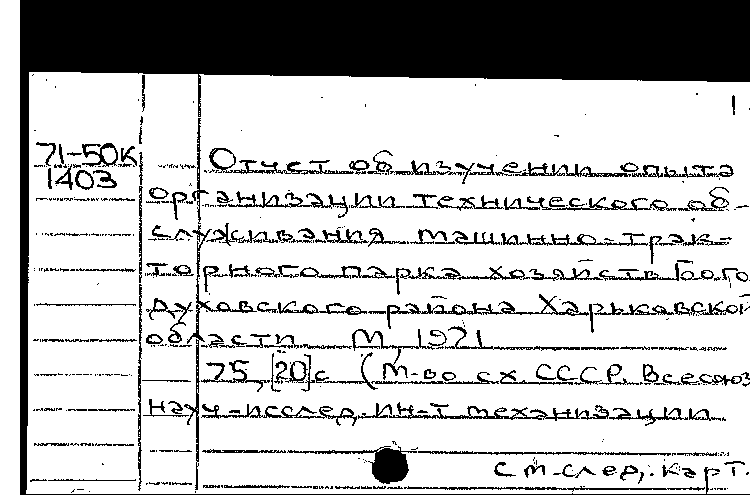 1
71-50к
1403
Отчет об изучении опыта
организации технического об-
служивания машинно-трак-
торного парка хозяйств Бого
духовского района Харьковской
области. М, 1971
75, [20] с (М-во сх. СССР. Всесоюз
науч-исслед. ин-т механизации
см-след. карт.